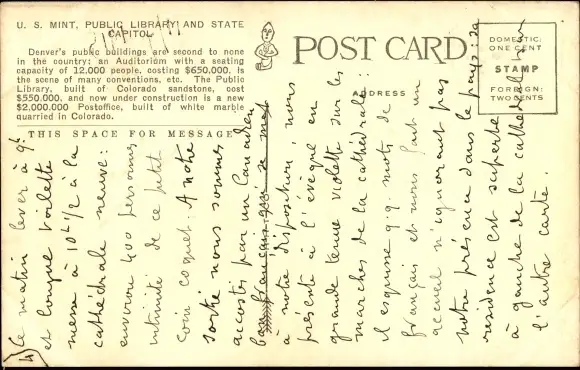 U. S. MINT, PUBLIC LIBRARY AND STATE
CAPITOL
Denver's public buildings are second to none
in the country: an Auditorium with a seating
capacity of 12,000 people, costing $650,000. Is
the scene of many conventions, etc. The Public
Library, built of Colorado sandstone, cost
$550,000, and now under construction is a new
$2,000,000 Postoffice, built of white marble
quarried in Colorado.
THIS SPACE FOR MESSAGE
POST CARD
ADDRESS
DOMESTIC:
ONE CENT
STAMP
FOREIGN:
TWO CENTS
4)
Ce matin lever à 9h
et longue toilette
messe à 10h1/2 à la
cathédrale neuve:
environ 400 personnes
intimité de ce petit
coin coquet. A notre
sortie nous sommes
accostés par un Canadien
français qui se met
à notre disposition, nous
présente à l'évêque en
grande tenue violette sur les
marches de la cathédrale:
il esquisse qq. mots de
français et nous fait un
accueil n'ignorant pas
notre présence dans le pays: sa
résidence est superbe
à gauche de la cathédrale sur
l'autre carte.